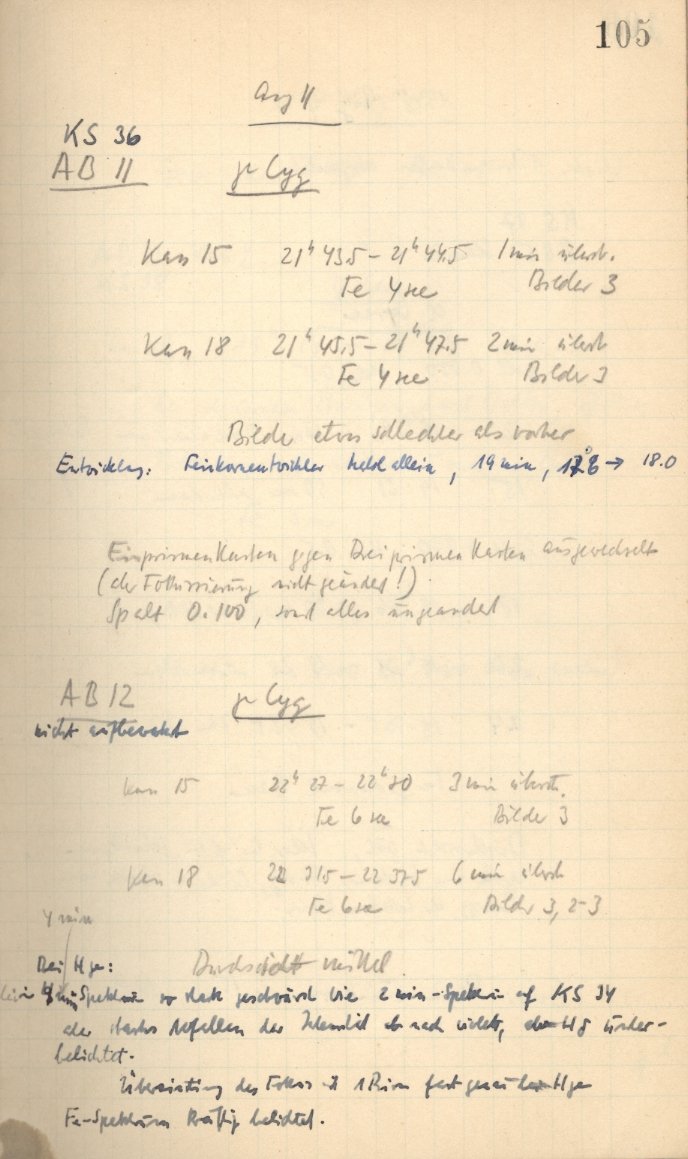 105
Aug 11
KS 36
AB 11 γ Cyg
Kass 15 21h 43.5 – 21h 44.5 1 min überst.
Fe 4 sec Bilder 3
Kass 18 21h 45.5 – 21h 47.5 2 min überst
Fe 4 sec Bilder 3
Bilder etwas schlechter als vorher
Entwicklung: Feinkornentwickler Metol allein, 19 min, → 18.0
Einprismenkasten gegen Dreiprismenkasten ausgewechselt
(der Fokussierung nicht geändert!)
Spalt 0.100, sonst alles ungeändert
AB 12 γ Cyg
nicht aufbewahrt
Kass 15 22h 27 – 22h 30 3 min überst.
Fe 6 sec Bilder 3
Kass 18 22 31.5 – 22 37.5 6 min überst
Fe 6 sec Bilder 3, 2-3
4 min
Bei Hγ: Durchsicht mittel
Spektrum so stark geschwärzt wie 2 min-Spektrum auf KS 34
aber starkes Abfallen der Intensität nach violett, Hδ unter-
belichtet.
des Fokus mit 1 Prisma fast genau bei Hγ
Fe-Spektrum kräftig belichtet.